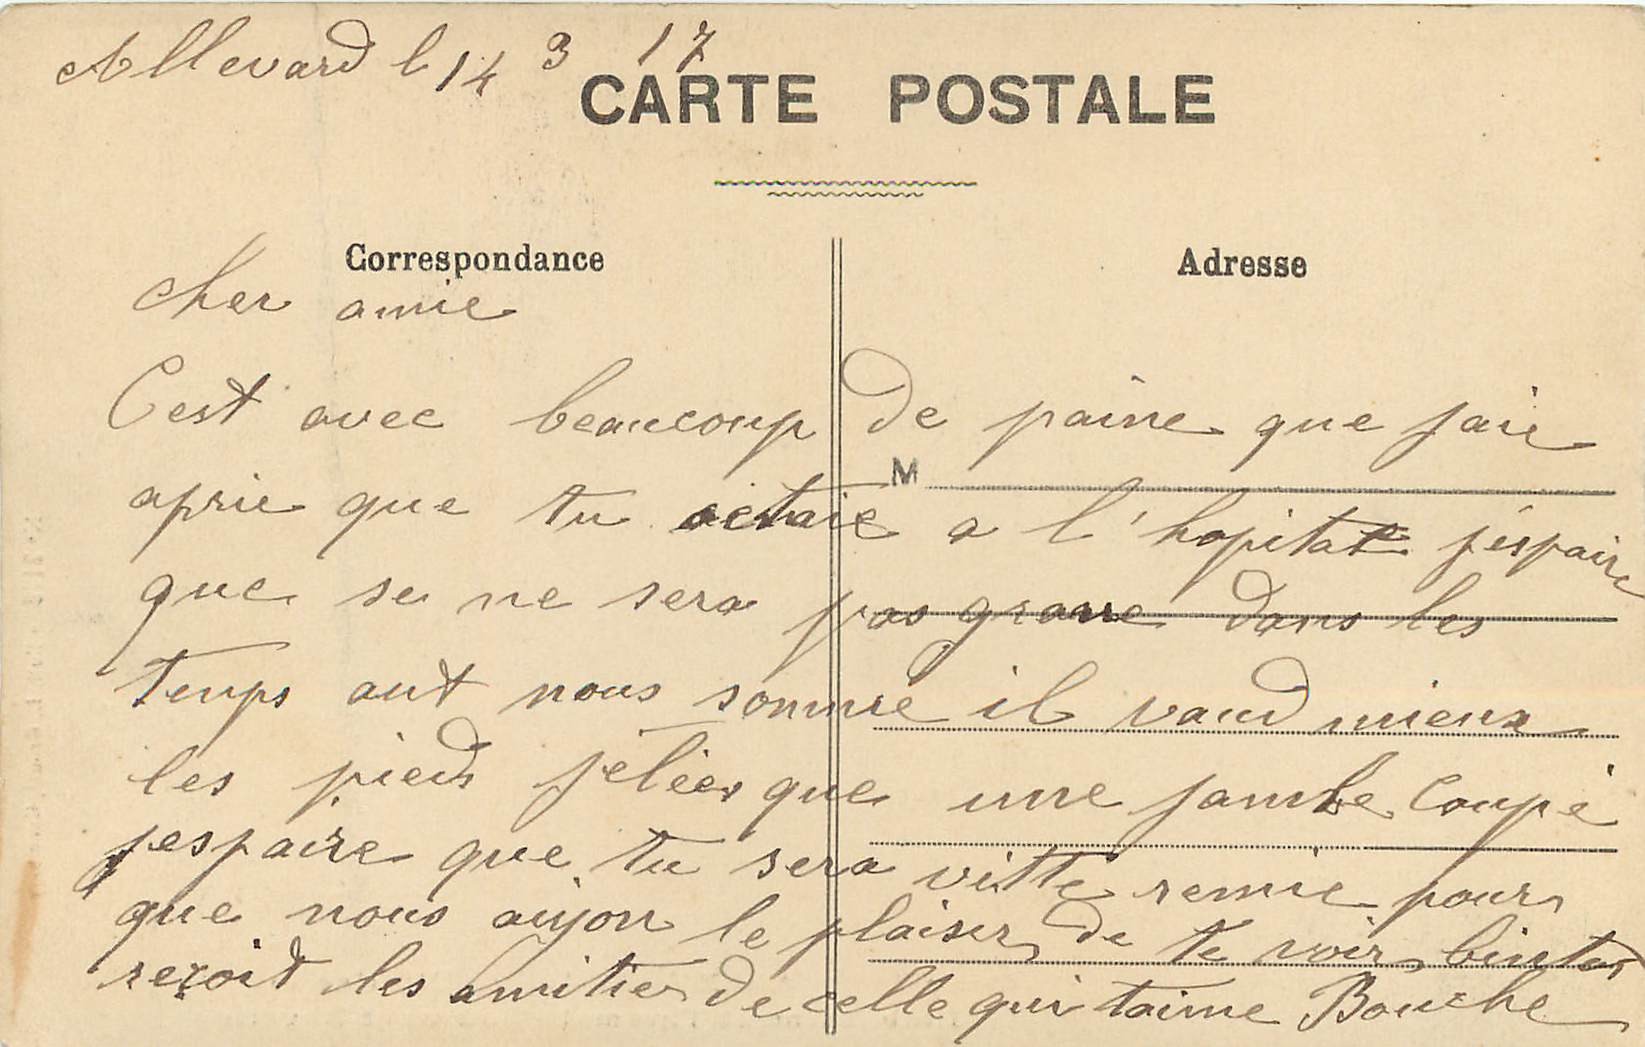 Allevard l 14 3 17
CARTE POSTALE
Correspondance
Adresse
cher amie
C'est avec beaucoup de paine que jaie
M
aprie que tu etaie a l'hopital j'éspaire
que se ne sera pas grave dans les
temps out nous somme il vaud mieux
les pieds jélées que une jambe coupé
jespaire que tu sera vitte remie pour
que nous aiyon le plaiser de te voir bintot
reçoit les amities de celle qui taime Bouche